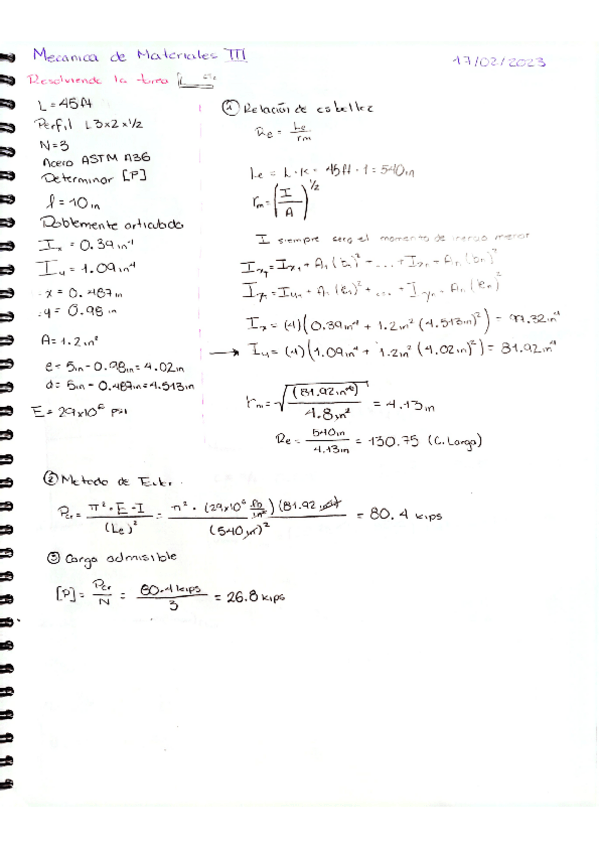 Mecanica de Materiales III
17/02/2023
Resolviendo la tarea
L = 45ft
Perfil L3x2x1/2
N=3
Acero ASTM A36
Determinar [P]
l = 10in
Doblemente articulado
Ix = 0.39in⁴
Iy = 1.09in⁴
x = 0.487in
y = 0.98in
A = 1.2in²
e = 5in - 0.98in = 4.02in
d = 5in - 0.487in = 4.513in
E = 29x10⁶ psi
① Relación de esbeltez
Re = Le/rm
Le = L·K = 45ft·1 = 540in
rm = (I/A)^1/2
I siempre sera el momento de inercia menor
Ix = (4)(0.39in⁴ + 1.2in²(4.513in)²) = 99.32in⁴
→ Iy = (4)(1.09in⁴ + 1.2in²(4.02in)²) = 81.92in⁴
rm = √((81.92in⁴)/4.8in²) = 4.13in
Re = 540in/4.13in = 130.75 (C. Larga)
② Metodo de Euler.
Pcr = π²·E·I/(Le)² = π²·(29x10⁶ lb/in²)(81.92in⁴)/(540in)² = 80.4 kips
③ Carga admisible
[P] = Pcr/N = 80.4kips/3 = 26.8 kips